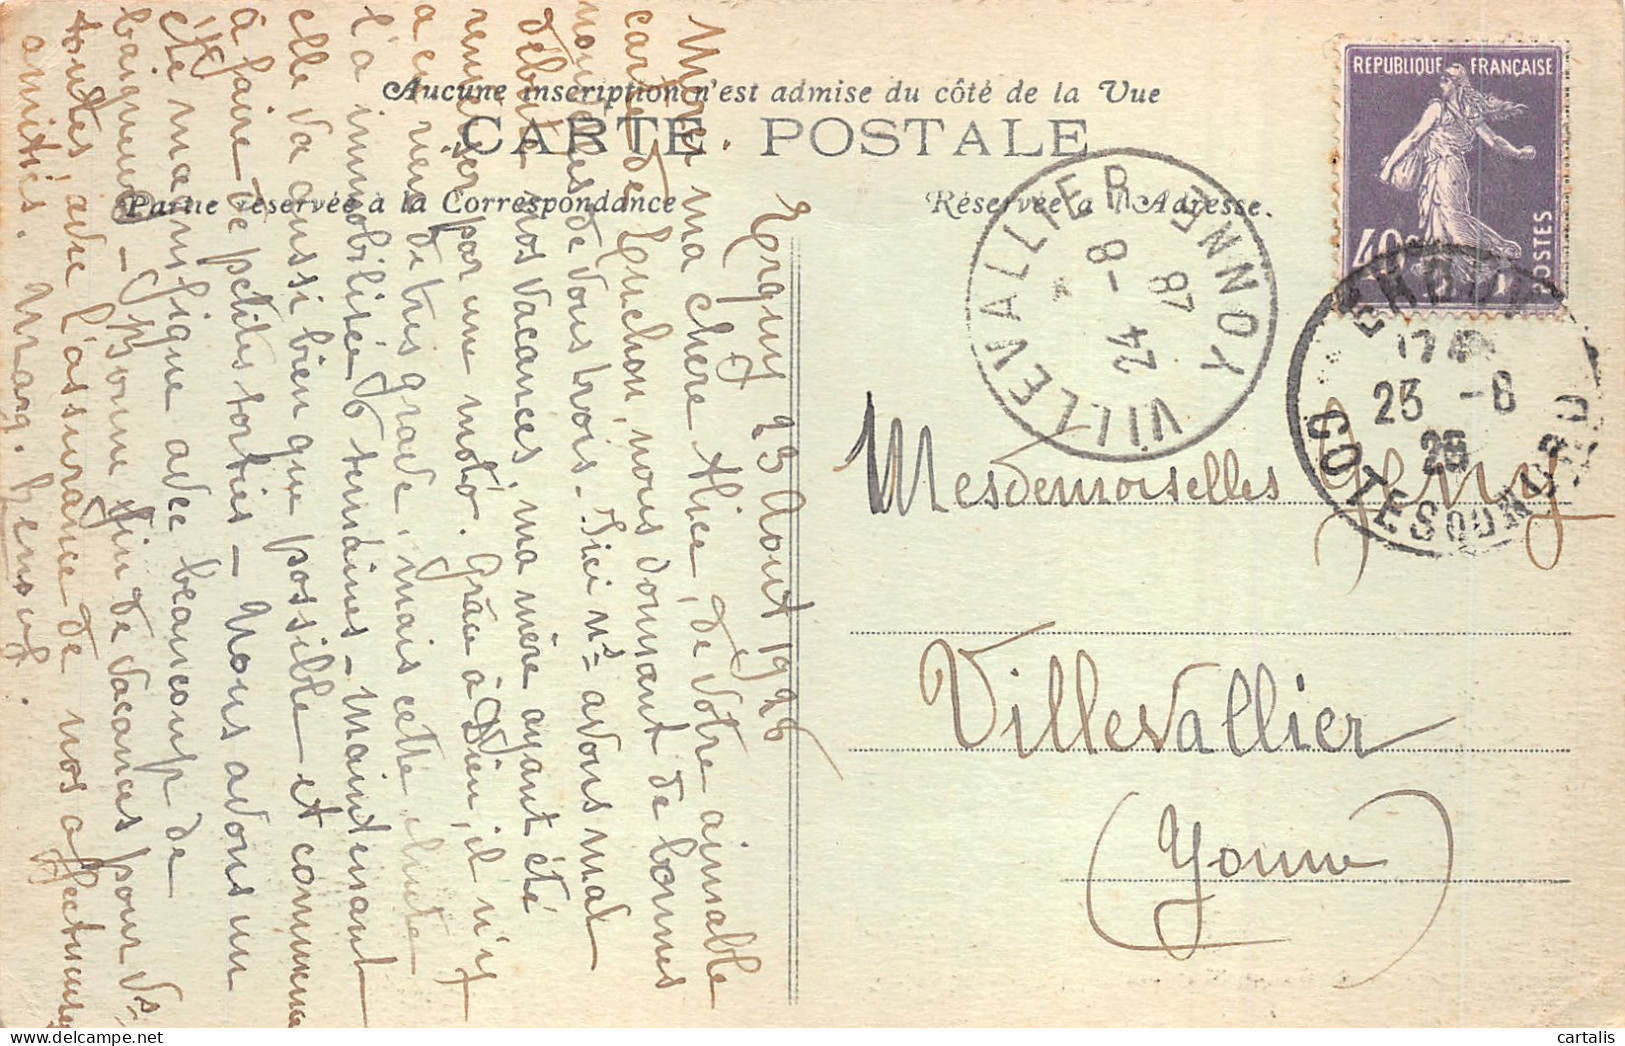 Aucune inscription n'est admise du côté de la Vue
CARTE POSTALE
Partie réservée à la Correspondance
Réservée à l'Adresse.
REPUBLIQUE FRANÇAISE
POSTES
40
VILLEVALLIER YONNE
24 -8
26
ERQUY
1740
23 -8
26
COTES DU NORD
Mesdemoiselles
Villevallier
(Yonne)
Erquy 23 Août 1926
Merci ma chère Alice, de votre aimable
carte de Luchon, nous donnant de bonnes
nouvelles de vous trois. Ici ns avons mal
débuté nos vacances, ma mère ayant été
renversée par une moto. Grâce à Dieu, il n'y
a eu rien de très grave, mais cette chute
l'a immobilisée 6 semaines - Maintenant
elle va aussi bien que possible et commence
à faire de petites sorties - Nous avons un
été magnifique avec beaucoup de
baigneurs - Bonne fin de vacances pour vs
toutes, avec l'assurance de nos affectueuses
amitiés. Marg.